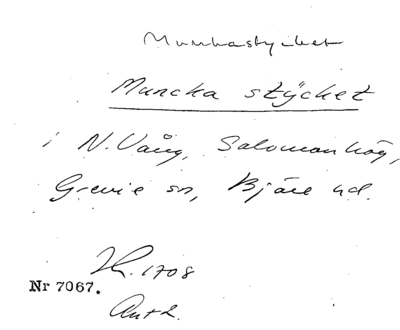 Munkastycket
Muncka stÿcket
i N. Vång, Salomonhög,
Grevie sn, Bjäre hd.
Lk. 1708
Nr 7067.
Ant 2.